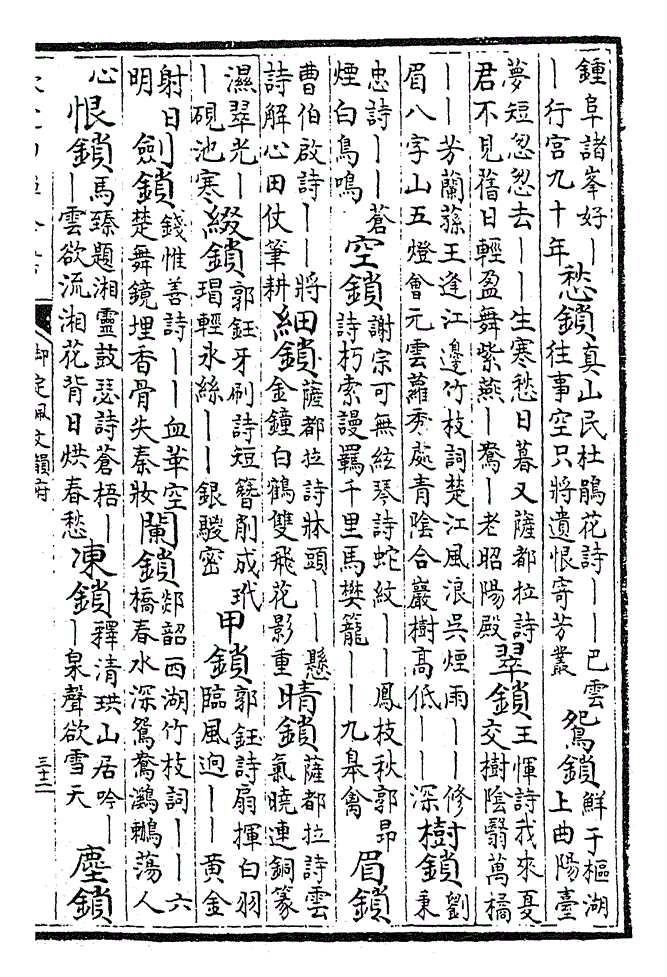 鍾阜諸峯好｜｜行宮九十年愁鎖真山民杜鵑花詩｜｜巴雲往事空只將遺恨寄芳叢鴛鎖鮮于樞湖上曲陽臺
夢短怱怱去｜｜生寒愁日暮又薩都拉詩君不見舊日輕盈舞紫燕｜鴦｜老昭陽殿翠鎖王惲詩我來憂交樹陰翳萬橘
｜｜芳蘭蓀王逢江邊竹枝詞楚江風浪吳煙雨｜｜修眉八字山五燈會元雲蘿秀處青陰合巖樹高低｜｜深樹鎖劉秉
忠詩｜｜蒼煙白鳥鳴空鎖謝宗可無絃琴詩蛇紋｜｜鳳枝秋郭昂詩朽索謾羈千里馬樊籠｜｜九臯禽眉鎖
曹伯啟詩｜｜將詩解心田仗筆耕細鎖薩都拉詩牀頭｜｜懸金鐘白鶴雙飛花影重晴鎖薩都拉詩雲氣曉連銅篆
濕翠光｜｜硯池寒綴鎖郭鈺牙刷詩短簪削成玳瑁輕氷絲｜｜銀騣密甲鎖郭鈺詩扇揮白羽臨風逈｜｜黃金
射日明劍鎖錢惟善詩｜｜血華空楚舞鏡埋香骨失秦妝闌鎖郯韶西湖竹枝詞｜｜六橋春水深鴛鴦鸂鶒蕩人
心恨鎖馬臻題湘靈鼓瑟詩蒼梧｜｜雲欲流湘花背日烘春愁凍鎖釋清珙山居吟｜｜泉聲欲雪天塵鎖
御定佩文韻府
三十二